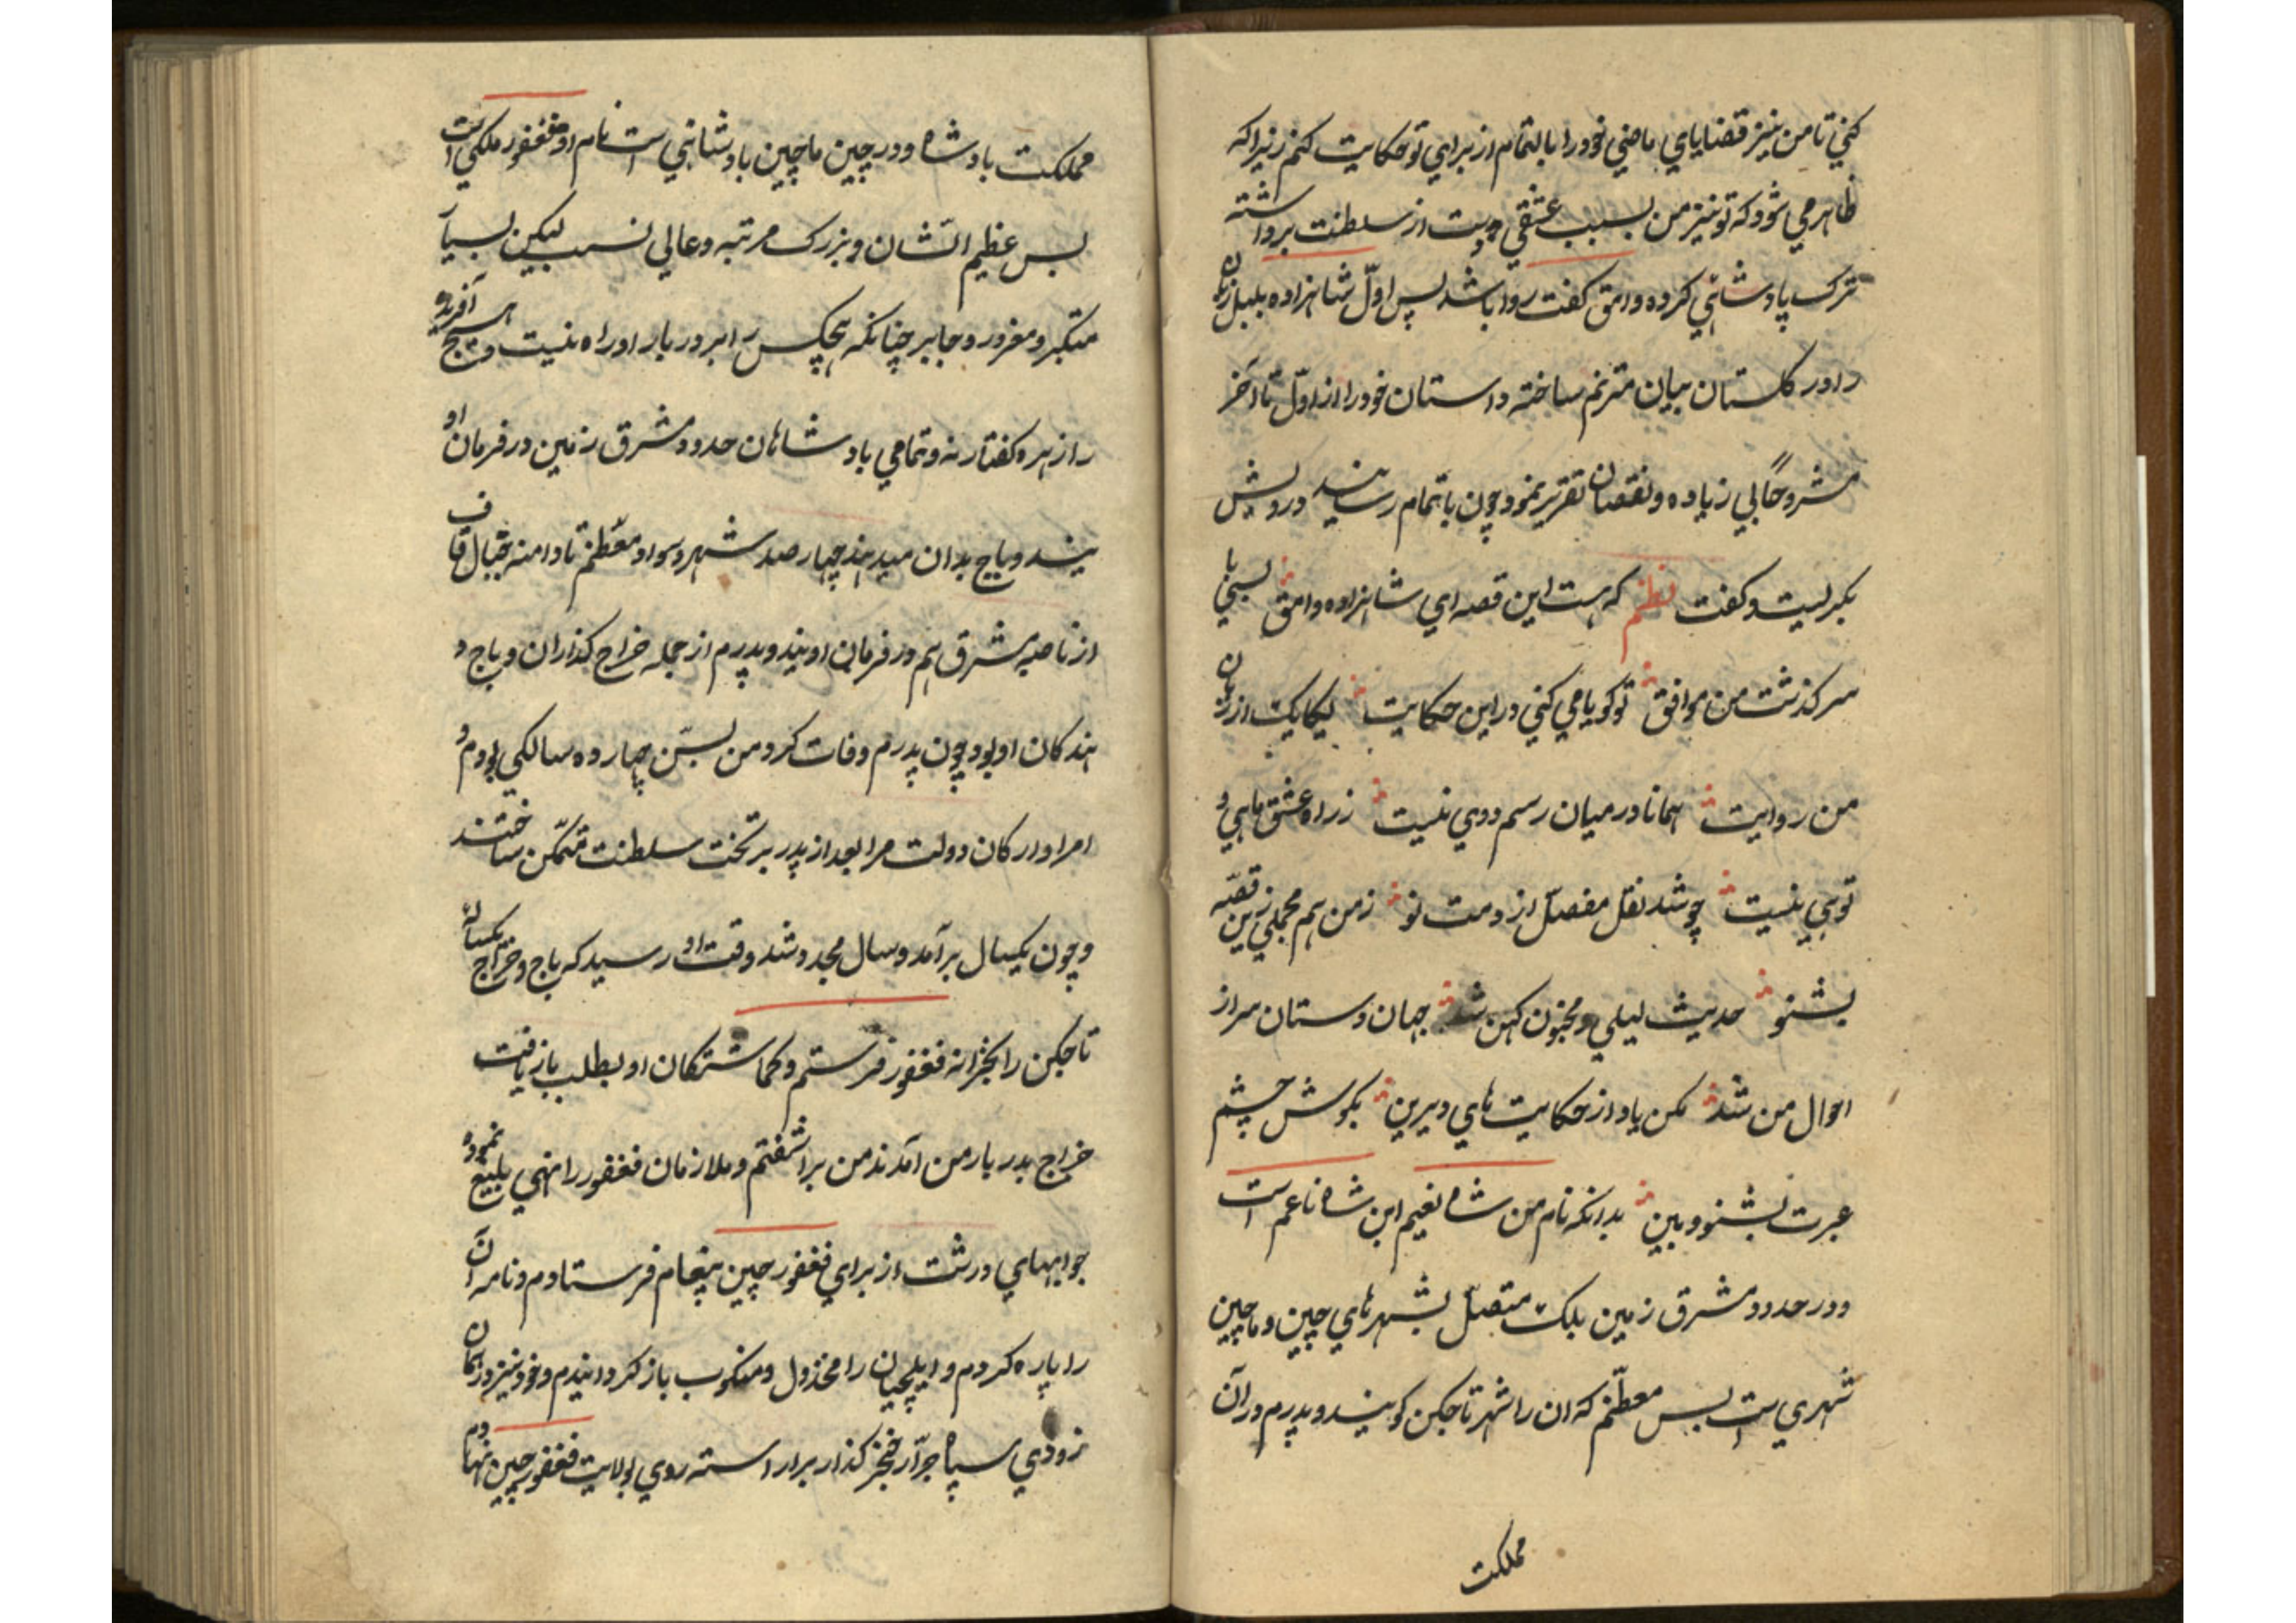 کنی تا من نیز قضایای ماضی خود را بالتمام از برای تو حکایت کنم زیرا که
ظاهر می شود که تو نیز من بسبب عشقی دست از سلطنت برداشته
ترک پادشاهی کرده وامق گفت روا باشد پس اول شاهزاده بلبل زبان
را در گلستان بیان مترنم ساخته داستان خود را از اول تا آخر
مشروحاً بی زیاده و نقصان تقریر نمود چون باتمام رسانید درویش
بگریست و گفت نظم که هست این قصه ای شاهزاده وامق بسی با
سرگذشت من موافق تو گویا می کنی در این حکایت یکایک از زبان
من روایت همانا در میان رسم دوی نیست ز راه عشق مایی و
تویی نیست چو شد نقل مفصل از دمت نو ز من هم مجملی زین قصه
بشنو حدیث لیلی و مجنون کهن شد جهان دستان سراز
احوال من شد مکن یاد از حکایت های دیرین بگوش چشم
عبرت بشنو و بین بدانکه نام من شاه نعیم ابن شاه ناعم است
و در حدود مشرق زمین بلک متصل بشهرهای چین و ماچین
شهری است بس معظم که ان را شهر تاجکن گویند و پدرم در آن
مملکت
مملکت بادشاه و در چین ماچین بادشاهی است نام او فغفور ملکی است
بس عظیم الشان و بزرک مرتبه و عالی نسب لیکن بسیار
متکبر و مغرور و جابر چنانکه هیچکس را بر دربار او راه نیست و هیچ آفریده
را زهره گفتار نه و تمامی بادشاهان حدود مشرق زمین در فرمان او
یند و باج بدان میدهند چهار صد شهر و سواد معظم تا دامنه جبال قاف
از ناصیه مشرق هم در فرمان اویند و پدرم از جمله خراج گذاران و باج د
هندگان او بود چون پدرم وفات کرد من بسن چهارده سالگی بودم و
امرا و ارکان دولت مرا بعد از پدر بر تخت سلطنت متمکن ساختند
و چون یکسال برآمد و سال مجدد شد وقت او رسید که باج و خراج یکساله
تاجکن را بخزانه فغفور فرستم و گماشتگان او بطلب بازیافت
خراج بدربار من آمدند من براشفتم و ملازمان فغفور را نهی بلیغ نموده
جوابهای درشت از برای فغفور چین پیغام فرستادم و نامه آن
را پاره کردم و ایلچیان را مخذول و منکوب باز گردانیدم و خود نیز در همان
زودی سپاه جرار خنجر گذار برار استه روی بولایت فغفور چین نهادم